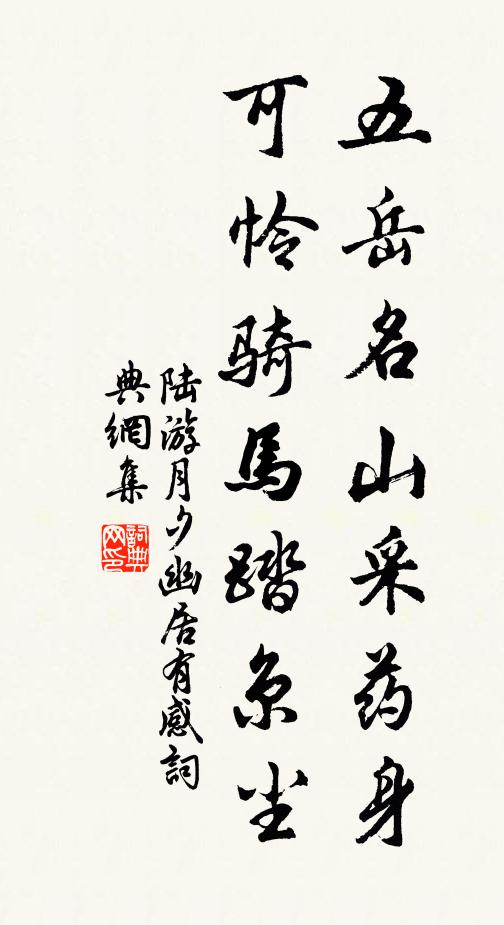 五岳名山采药身
可怜骑馬踏京尘
陆游月夕幽居有感詞
典網集
詞典
网印